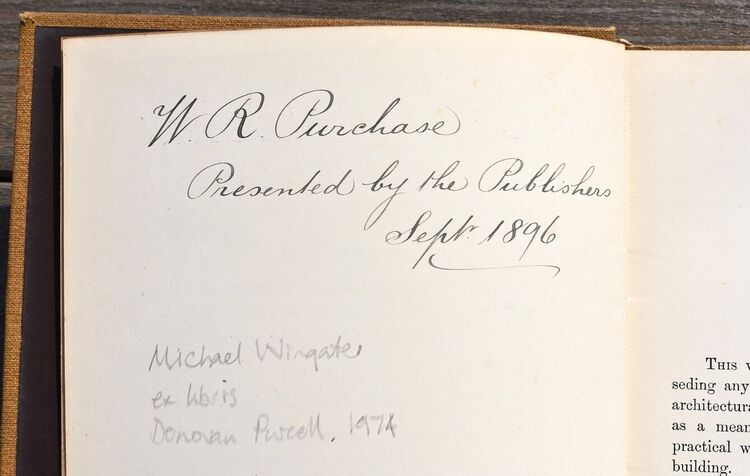 W. R. Purchase
Presented by the Publishers
Sept. 1896
Michael Wingate
ex libris
Donovan Purcell, 1974
This
seding any
architectura
as a mean
practical w
building.